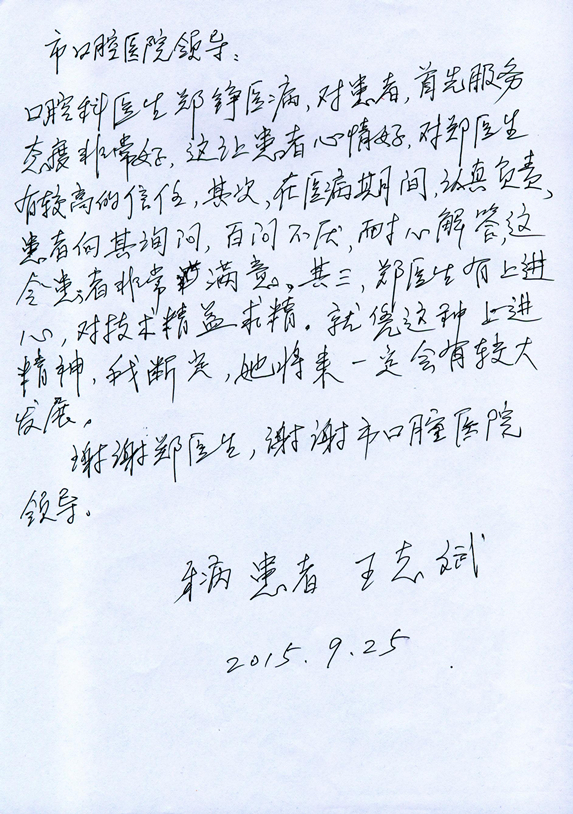 市口腔医院领导：
口腔科医生郑铮医病，对患者，首先服务
态度非常好，这让患者心情好，对郑医生
有较高的信任，其次，在医病期间，认真负责，
患者向其询问，百问不厌，耐心解答，这
令患者非常满意。其三，郑医生有上进
心，对技术精益求精。就凭这种上进
精神，我断定，她将来一定会有较大
发展。
谢谢郑医生，谢谢市口腔医院
领导。
牙病患者 王志斌
2015.9.25